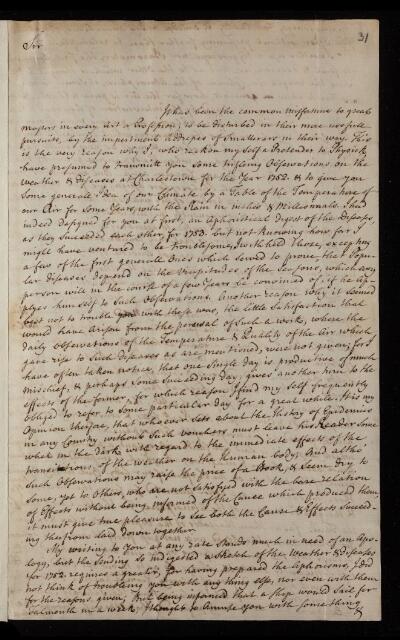 31
Sir
It has been the common misfortune to great
masters in every Art & Profession, to be disturbed in their more usefull
pursuits, by the impertinent Addresses of Smatterers in their way. This
is the very reason why I, who reckon my self a Pretender to Physick
have presumed to transmitt you Some trifling Observations on the
weather & Diseases at Charlestown for the Year 1752. & to give you
Some generall Idea of our Climate by a Table of the Temperature of
our Air for Some Years, with the Rain in inches & Millesimals. I had
indeed designed for you at first, an Aphoristical Digest of the Diseases,
as they Succeeded each other, for 1753. but not knowing how far I
might have ventured to be troublesome, I withheld those, excepting
a few of the first generall Ones which Served to prove, that Popu-
lar diseases depend on the Vicissitudes of the Seasons, which any
person will in the course of a few Years be convinced of, if he Ap-
plyes himself to Such Observations. Another reason why it Seemed
best not to trouble you with these was, the little Satisfaction that
would have Arisen from the perusal of Such a work, where the
daily Observations of the Temperature & Quality of the Air which
gave rise to Such diseases as are mentioned, were not given; for I
have often taken notice, that one Single day is productive of much
mischief, & perhaps Some Succeeding day, gives another turn to the
effects of the former, for which reason I find my Self frequently
obliged to refer to Some particular day for a great while. It is my
Opinion therefore, that whosoever Sets about the History of Epidemics
in any Country without Such Vouchers must leave his Reader Some
what in the dark with regard to the immediate effects of the
transitions, of the weather on the Human body; And altho'
Such Observations may raise the price of a Book, & Seem Dry to
Some, yet to Others, who are not Satisfyed with the bare relation
of Effects without being informed of the Cause which produced them
it must give true pleasure to See both the Cause & Effects Succeed-
ing therefrom laid down together
My writing to You at any rate Stands much in need of an Apo-
logy, but the Sending So indigested a Sketch of the Weather & diseases
for 1752 requires a greater, for having prepared the Aphorisms, I did
not think of troubling you with any thing else, nor even with them
for the reasons given; But being informed that a Ship would Sail for
Falmouth in a week, I thought to Amuse you with Something